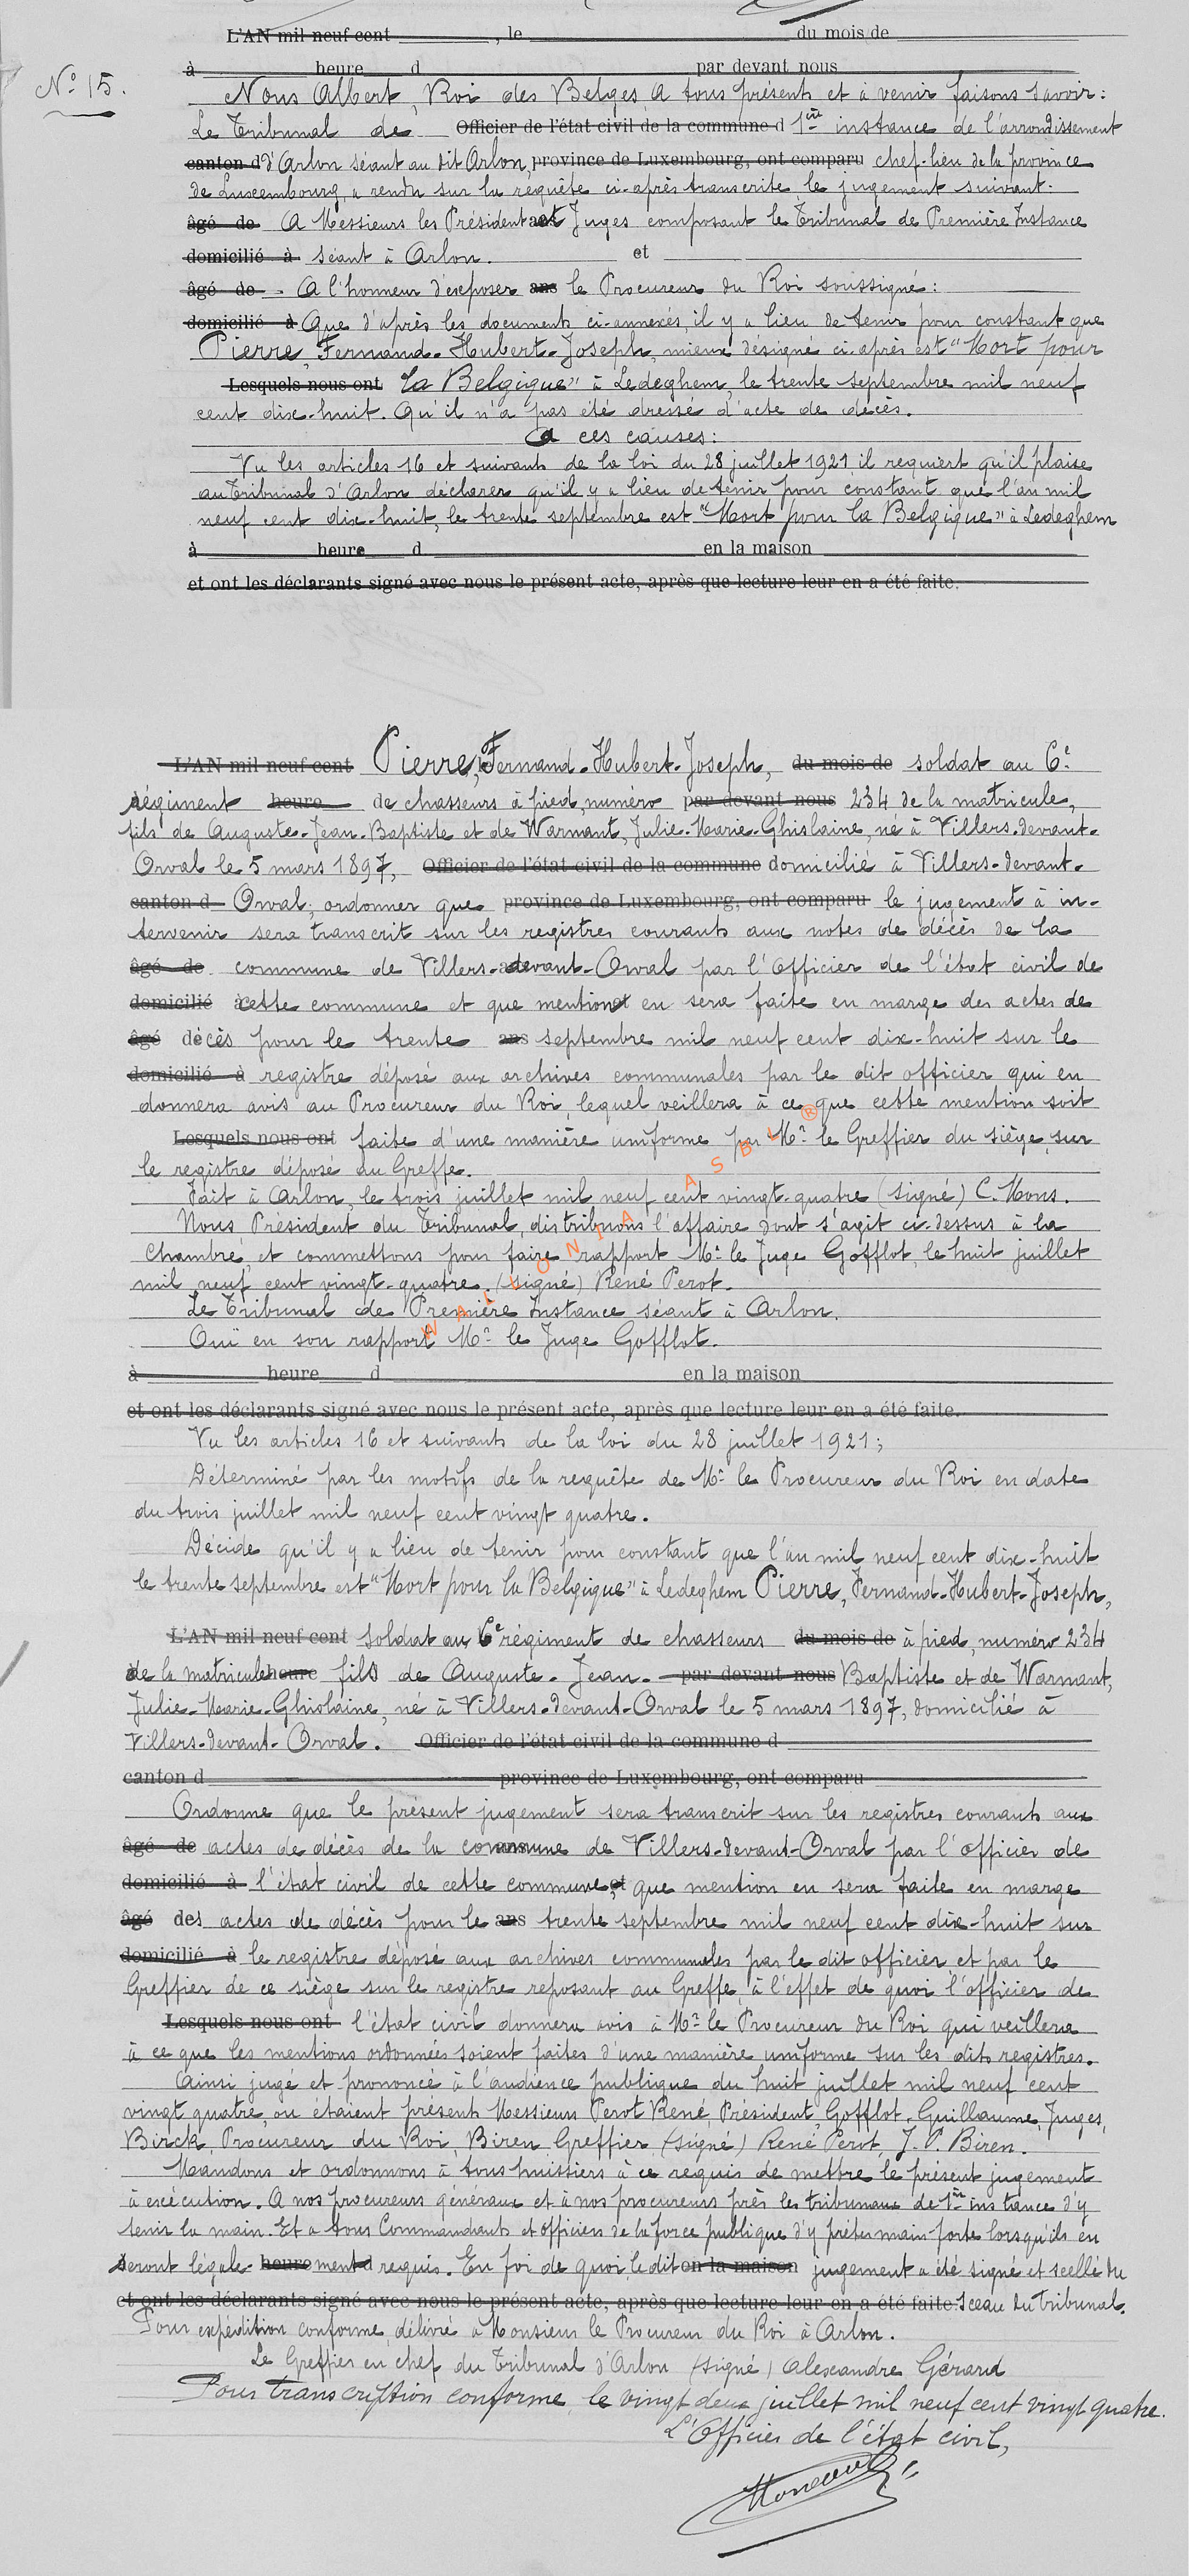 L'AN mil neuf cent , le du mois de
à heure d par devant nous
N° 15.
Nous Albert, Roi des Belges, A tous présents et à venir faisons savoir :
Le Tribunal de Officier de l'état civil de la commune d 1ère instance de l'arrondissement
canton d d'Arlon séant au dit Arlon, province de Luxembourg, ont comparu chef-lieu de la province
de Luxembourg, a rendu sur la requête ci-après transcrite le jugement suivant :
âgé de A Messieurs les Président et Juges composant le Tribunal de Première Instance
domicilié à séant à Arlon. et
âgé de - A l'honneur d'exposer ans le Procureur du Roi soussigné :
domicilié à Que d'après les documents ci-annexés, il y a lieu de tenir pour constant que
Pierre, Fernand-Hubert-Joseph, mieux désigné ci-après est "Mort pour
Lesquels nous ont la Belgique" à Ledeghem, le trente septembre mil neuf
cent dix-huit. Qu'il n'a pas été dressé d'acte de décès.
A ces causes :
Vu les articles 16 et suivants de la loi du 28 juillet 1921, il requiert qu'il plaise
au Tribunal d'Arlon déclarer qu'il y a lieu de tenir pour constant que l'an mil
neuf cent dix-huit, le trente septembre est "Mort pour la Belgique" à Ledeghem
à heure d en la maison
et ont les déclarants signé avec nous le présent acte, après que lecture leur en a été faite.
L'AN mil neuf cent Pierre, Fernand-Hubert-Joseph, du mois de soldat au 6e
régiment heure de chasseurs à pied, numéro par devant nous 234 de la matricule,
fils de Auguste-Jean-Baptiste et de Warnant, Julie-Marie-Ghislaine, né à Villers-devant-
Orval le 5 mars 1897, Officier de l'état civil de la commune domicilié à Villers-devant-
canton d Orval ; ordonner que province de Luxembourg, ont comparu le jugement à in-
tervenir sera transcrit sur les registres courants aux notes de décès de la
âgé de commune de Villers-devant-Orval par l'Officier de l'état civil de
domicilié à cette commune et que mention en sera faite en marge des actes de
âgé décès pour le trente ans septembre mil neuf cent dix-huit sur le
domicilié à registre déposé aux archives communales par le dit officier qui en
donnera avis au Procureur du Roi, lequel veillera à ce que cette mention soit
Lesquels nous ont faite d'une manière uniforme par Mr le Greffier du siège, sur
le registre déposé au Greffe.
Fait à Arlon, le trois juillet mil neuf cent vingt-quatre (signé) C. Mons.
Nous Président du Tribunal, distribuons l'affaire dont s'agit ci-dessus à la
Chambre, et commettons pour faire rapport Mr le Juge Gofflot, le huit juillet
mil neuf cent vingt-quatre. (signé) René Perot.
Le Tribunal de Première Instance séant à Arlon.
Ouï en son rapport Mr le Juge Gofflot.
WALLONIA ASBL ®
à heure d en la maison
et ont les déclarants signé avec nous le présent acte, après que lecture leur en a été faite.
Vu les articles 16 et suivants de la loi du 28 juillet 1921 ;
Déterminé par les motifs de la requête de Mr le Procureur du Roi en date
du trois juillet mil neuf cent vingt quatre.
Décide qu'il y a lieu de tenir pour constant que l'an mil neuf cent dix-huit
le trente septembre est "Mort pour la Belgique" à Ledeghem Pierre, Fernand-Hubert-Joseph,
L'AN mil neuf cent soldat au 6e régiment de chasseurs du mois de à pied, numéro 234
de la matricule heure fils de Auguste-Jean- par devant nous Baptiste et de Warnant,
Julie-Marie-Ghislaine, né à Villers-devant-Orval le 5 mars 1897, domicilié à
Villers-devant-Orval. Officier de l'état civil de la commune d
canton d province de Luxembourg, ont comparu
Ordonne que le présent jugement sera transcrit sur les registres courants aux
âgé de actes de décès de la commune de Villers-devant-Orval par l'officier de
domicilié à l'état civil de cette commune, et que mention en sera faite en marge
âgé des actes de décès pour le ans trente septembre mil neuf cent dix-huit sur
domicilié à le registre déposé aux archives communales par le dit officier et par le
Greffier de ce siège sur le registre reposant au Greffe, à l'effet de quoi l'officier de
Lesquels nous ont l'état civil donnera avis à Mr le Procureur du Roi qui veillera
à ce que les mentions ordonnées soient faites d'une manière uniforme sur les dits registres.
Ainsi jugé et prononcé à l'audience publique du huit juillet mil neuf cent
vingt quatre, où étaient présents Messieurs Perot René, Président, Gofflot, Guillaume, Juges,
Birck, Procureur du Roi, Biren Greffier (signé) René Perot, J. P. Biren.
Mandons et ordonnons à tous huissiers à ce requis de mettre le présent jugement
à exécution. A nos procureurs généraux et à nos procureurs près les tribunaux de 1ère instance d'y
tenir la main. Et a tous Commandants et officiers de la force publique d'y prêter main-forte lorsqu'ils en
seront légale- heure ment d requis. En foi de quoi, le dit en la maison jugement a été signé et scellé du
et ont les déclarants signé avec nous le présent acte, après que lecture leur en a été faite. Sceau du Tribunal.
Pour expédition conforme, délivré à Monsieur le Procureur du Roi à Arlon.
Le Greffier en chef du Tribunal d'Arlon (signé) Alexandre Gérard
Pour transcription conforme, le vingt deux juillet mil neuf cent vingt quatre.
L'Officier de l'état civil,